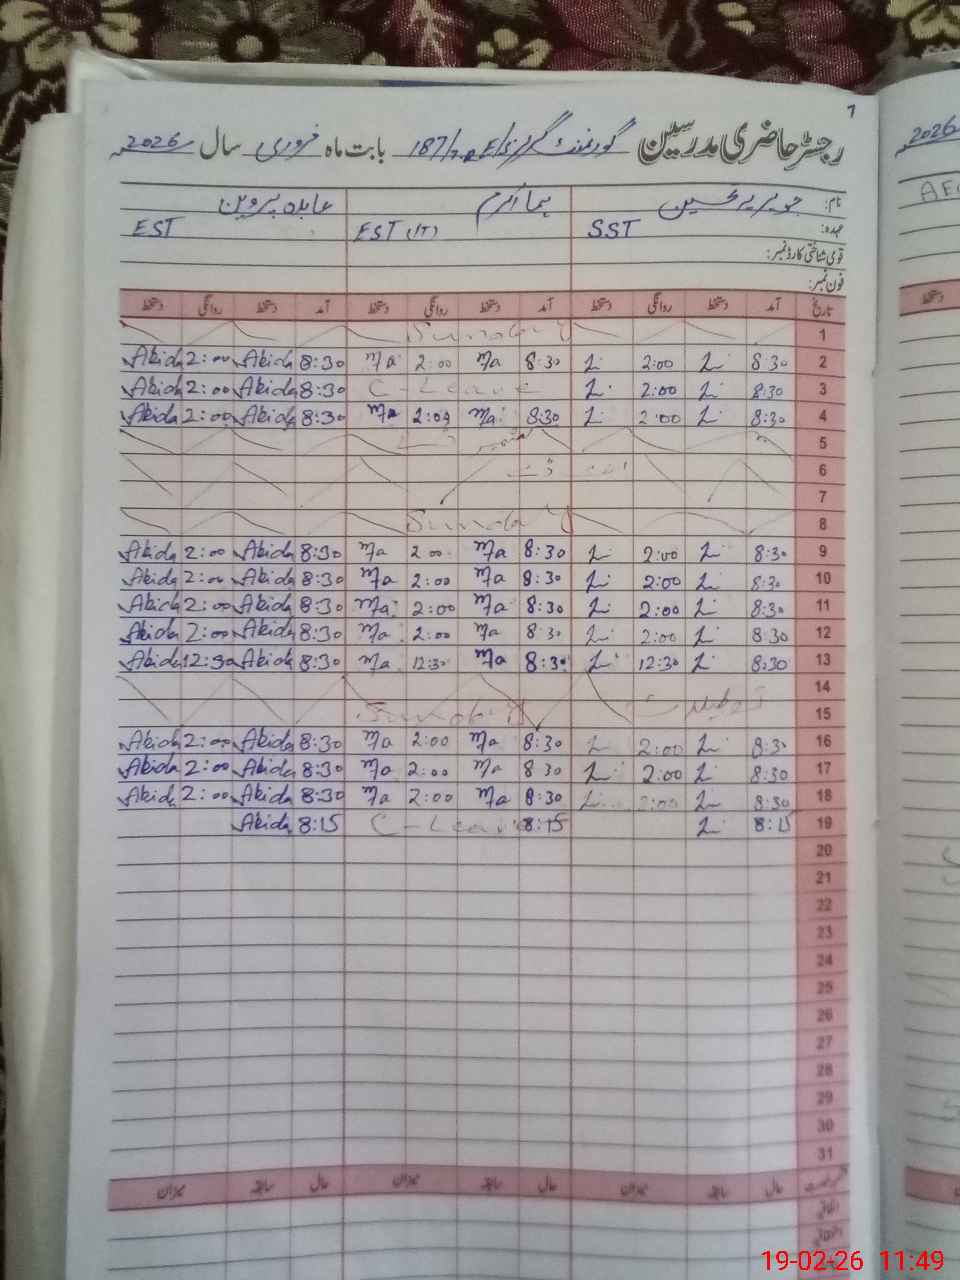 7
رجسٹر حاضری مدرسین گورنمنٹ گرلز 187/ بابت ماہ فروری سال 2026
نام: جویریہ تحسین ہما اکرم عابدہ پروین
عہدہ: SST EST (IT) EST
قومی شناختی کارڈ نمبر:
فون نمبر:
تاریخ آمد دستخط روانگی دستخط آمد دستخط روانگی دستخط آمد دستخط روانگی دستخط
1 Sunday
2 8:30 2:00 8:30 Ma 2:00 Ma 8:30 Abida 2:00 Abida
3 8:30 2:00 C-Leave 8:30 Abida 2:00 Abida
4 8:30 2:00 8:30 Ma 2:00 Ma 8:30 Abida 2:00 Abida
5 کشمیر ڈے
6
7
8 Sunday
9 8:30 2:00 8:30 Ma 2:00 Ma 8:30 Abida 2:00 Abida
10 8:30 2:00 8:30 Ma 2:00 Ma 8:30 Abida 2:00 Abida
11 8:30 2:00 8:30 Ma 2:00 Ma 8:30 Abida 2:00 Abida
12 8:30 2:00 8:30 Ma 2:00 Ma 8:30 Abida 2:00 Abida
13 8:30 12:30 8:30 Ma 12:30 Ma 8:30 Abida 12:30 Abida
14
15 Sunday
16 8:30 2:00 8:30 Ma 2:00 Ma 8:30 Abida 2:00 Abida
17 8:30 2:00 8:30 Ma 2:00 Ma 8:30 Abida 2:00 Abida
18 8:30 2:00 8:30 Ma 2:00 Ma 8:30 Abida 2:00 Abida
19 8:15 8:15 C-Leave 8:15 Abida
20
21
22
23
24
25
26
27
28
29
30
31
حال سابقہ میزان حال سابقہ میزان حال سابقہ میزان
اتفاقیہ
2026
19-02-26 11:49